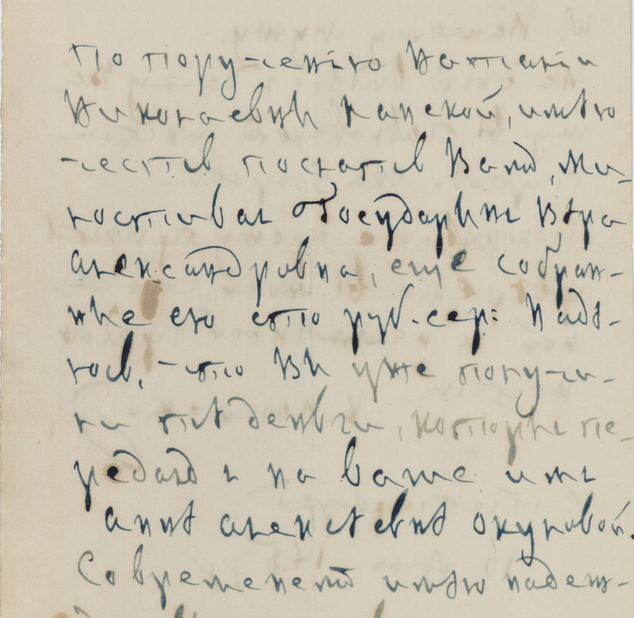 По порученію Наталіи
Николаевны Ланской, имѣю
честь послать Вамъ, Ми-
лостивая Государыня Вѣра
Александровна, еще собран-
ные ею сто руб. сер: Надѣ-
юсь, что Вы уже получи-
ли тѣ деньги, которыя пе-
редалъ я на ваше имя
Аннѣ Алексѣевнѣ Окуловой.
Современемъ имѣю надеж-